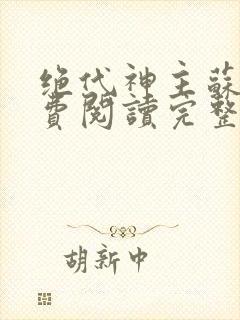 绝代神主蘇
費閱讀完整
胡新中